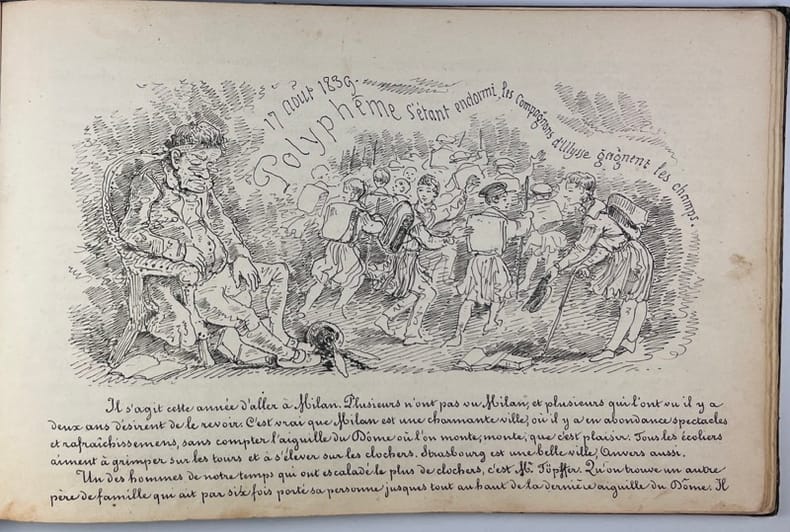 17 Août 1839.
Polyphême s'étant endormi, les Compagnons d'Ulysse gagnent les champs.
Il s'agit ceste année d'aller à Milan. Plusieurs n'ont pas vu Milan, et plusieurs qui l'ont vu il y a
deux ans désirent de le revoir. C'est vrai que Milan est une charmante ville, où il y a en abondance spectacles
et rafraîchissemens, sans compter l'aiguille du Dôme où l'on monte, monte, que c'est plaisir. Tous les écoliers
aiment à grimper sur les tours et à s'élever sur les clochers. Strasbourg est une belle ville, Anvers aussi.
Un des hommes de notre temps qui ont escaladé le plus de clochers, c'est Mr Töpffer. Qu'on trouve un autre
père de famille qui ait par six fois porté sa personne jusques tout au haut de la dernière aiguille du Dôme. Il